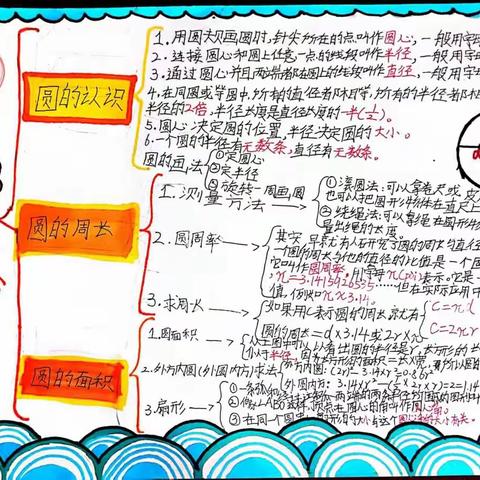 圆的认识
1.用圆规画圆时,针尖所在的点叫作圆心,一般用字母
2.连接圆心和圆上任意一点的线段叫作半径,一般用字
3.通过圆心并且两端都在圆上的线段叫作直径,一般用字母
4.在同圆或等圆中,所有的直径都相等,所有的半径都相
半径的2倍,半径长度是直径长度的一半(½)。
5.圆心决定圆的位置,半径决定圆的大小。
6.一个圆的半径有无数条,直径有无数条。
圆的画法
①定圆心
②定半径
③旋转一周画圆
圆的周长
1.测量方法
①滚圆法:可以拿着尺或皮
也可以把圆形物体在直尺上
②绕绳法:可以拿绳在圆形物体
量出绳的长度。
2.圆周率
其实,早就有人研究了圆的周长与直径
一个圆的周长与他的直径的比值是一个固
它叫作圆周率,用字母π(pài)表示。它是一
π=3.1415926535……但在实际应用中
值,例如π≈3.14。
3.求周长
如果用C表示圆的周长,就有
C=πd
圆的周长=d×3.14或2r×π
C=2πr
圆的面积
1.圆面积
2.外方内圆(外圆内方)求法
3.扇形
③在同一个圆中,扇形的大小与这个圆心角的大小有关。